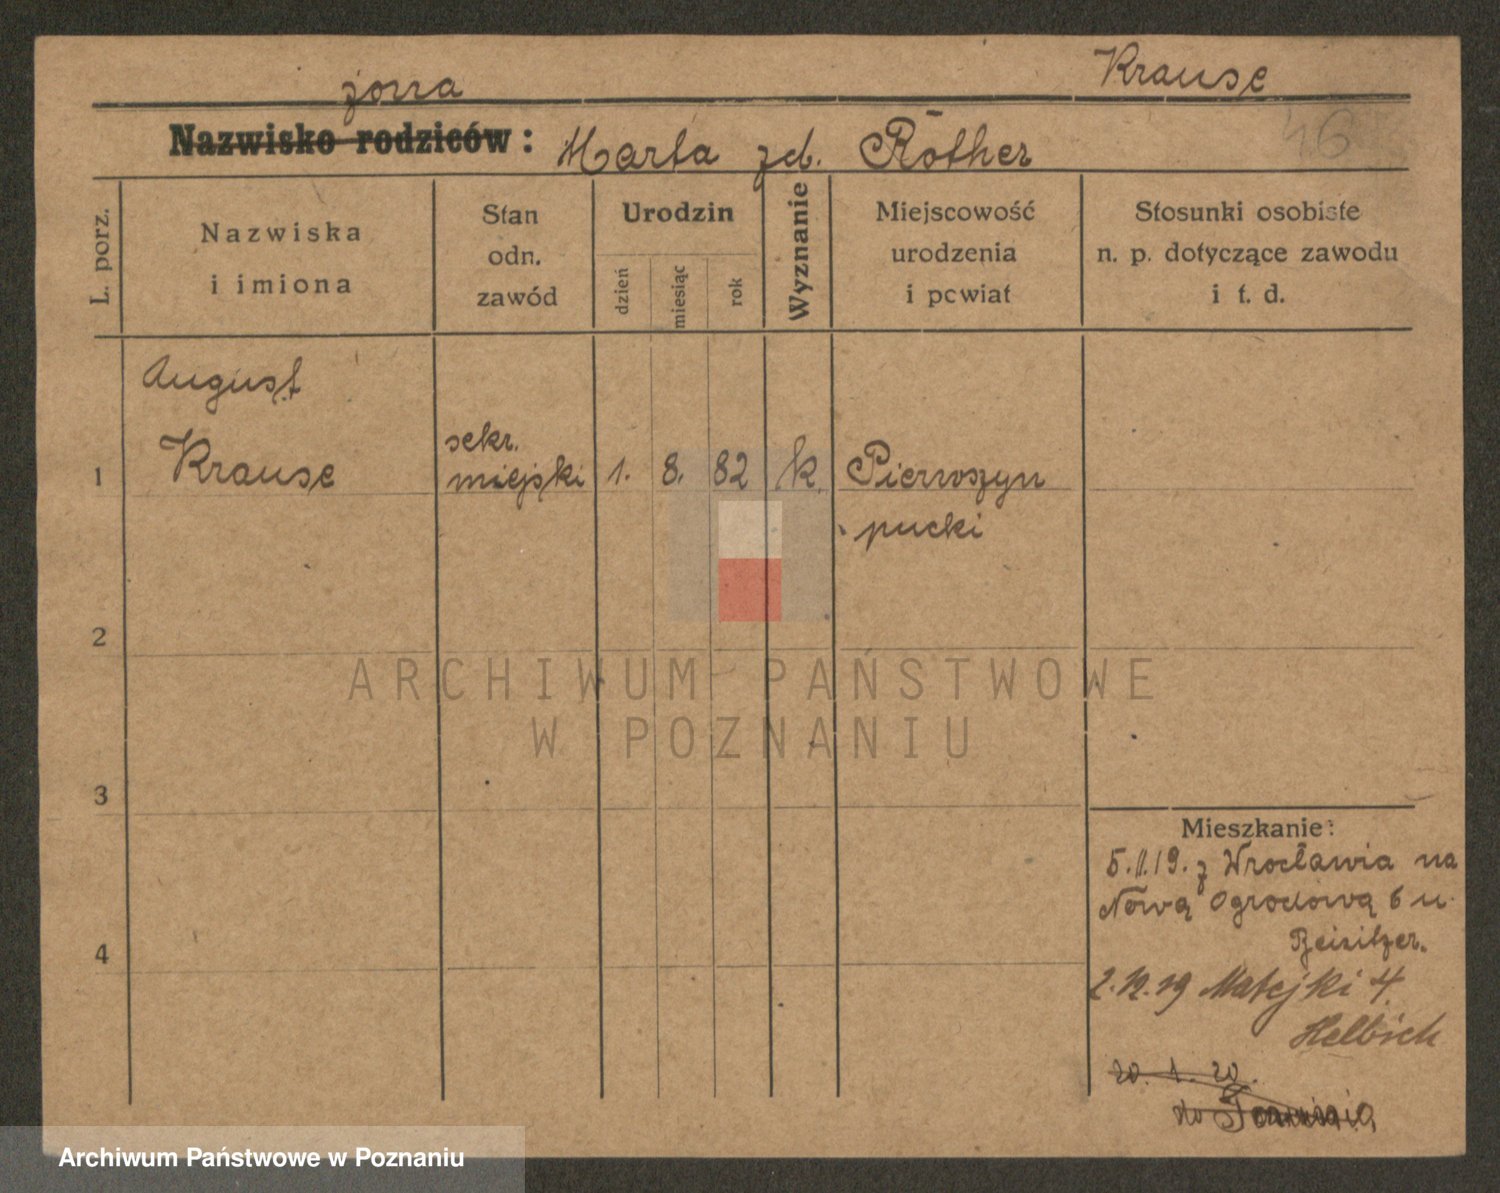 żona
Krause
46
Nazwisko rodziców: Marta zd. Röther
L. porz.
Nazwiska
i imiona
Stan
odn.
zawód
Urodzin
dzień
miesiąc
rok
Wyznanie
Miejscowość
urodzenia
i powiat
Stosunki osobiste
n. p. dotyczące zawodu
i t. d.
August
1 Krause sekr. miejski 1. 8. 82 k. Pierwoszyn
pucki
2
ARCHIWUM PAŃSTWOWE
W POZNANIU
3
Mieszkanie:
5.II.19. z Wrocławia na
Nową Ogrodową 6 u.
4
2.12.19 Matejki 4
Helbich
20. 1. 20.
do Torunia
Archiwum Państwowe w Poznaniu